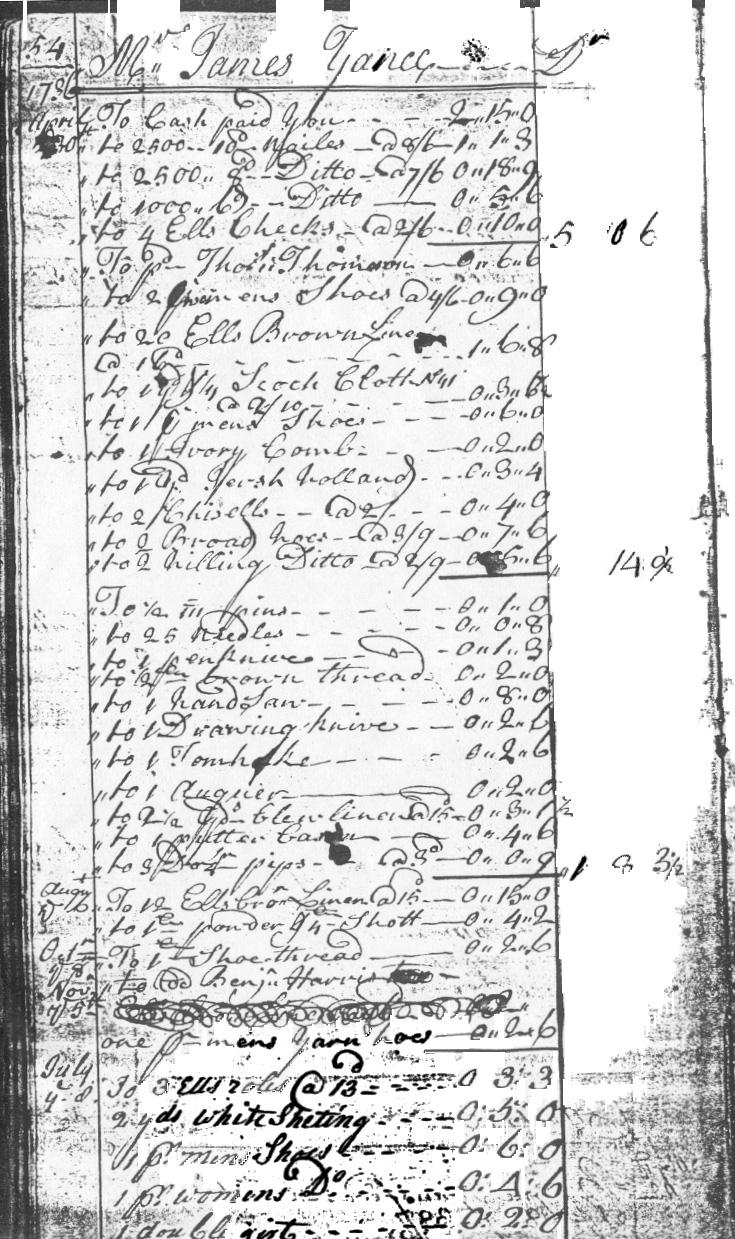 54 Mrs James Yance Dr
1736
April To Cash paid you 2 " 15 " 0
30th " to 2500 " 10d Nailes @ 8/6 1 " 1 " 3
" to 2500 " 8d Ditto @ 7/6 0 " 18 " 9
" to 1000 " 6d Ditto 0 " 5 " 6
" to 4 Ells Checks @ 2/6 0 " 10 " 0 5 0 6
" To pr Thoms Thomson 0 " 6 " 6
" to 2 mens Shoes @ 4/6 0 " 9 " 0
" to 20 Ells Brown Linen
@ 16d 1 " 6 " 8
" to 1 Scoch Cloth No 41
@ 2/10 0 " 3 " 6½
" to 1 pr mens Shoes 0 " 6 " 0
" to 1 Ivory Comb 0 " 2 " 0
" to 1 yd holland 0 " 3 " 4
" to 2 Chisells @ 2/ 0 " 4 " 0
" to 2 Broad hoes @ 3/9 0 " 7 " 6
" to 2 hilling Ditto @ 2/9 0 " 5 " 6 14 9½
" To ½ m pins 0 " 1 " 0
" to 25 Needles 0 " 0 " 8
" to 1 penknive 0 " 1 " 3
" to brown thread 0 " 2 " 0
" to 1 handsaw 0 " 8 " 0
" to 1 Drawing knive 0 " 2 " 6
" to 1 Tomhake 0 " 2 " 6
" to 1 Auguer 0 " 2 " 0
" to 2½ yds blew linen @ 15 0 " 3 " 1½
" to 1 putter bason 0 " 4 " 6
" to 3 Doz pips @ 3d 0 " 0 " 9 1 8 3½
Augu
To 12 Ells bron Linen @ 15 0 " 15 " 0
" to 1 pouder 4 Shott 0 " 4 " 2
Oct
To 1 Shoe thread 0 " 2 " 6
y 8 " to do Benjn Harris
Nov
y 5th
one pr mens Yarn hoes 0 " 2 " 6
July
y 8 To 3 Ells roles @ 13 0 : 3 : 3
2 yds white Sheting 0 : 5 : 0
1 pr mins Shoes 0 : 6 : 0
1 pr womens Do 0 : 4 : 6
1 double girt 0 : 2 : 0